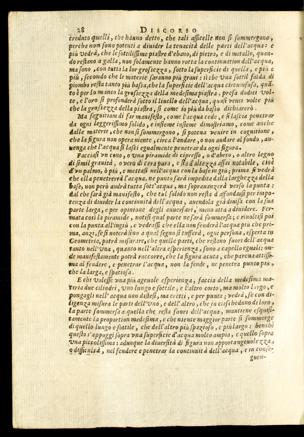 28 DISCORSO
creduto quelli, che hanno detto, che tali assicelle non si sommergano,
perche non sono potenti a diuider la tenacità delle parti dell'acqua: e
più vedrà, che le sottilissime piastre d'ebano, di pietra, e di metallo, quan-
do restano a galla, non solamente hanno rotta la continuation dell'acqua,
ma sono, con tutta la lor grossezza, sotto la superficie di quella, e più e
più, secondo che le materie saranno più graui: sì che vna sottil falda di
piombo resta tanto più bassa, che la superficie dell'acqua circunfusa, quã-
to è per lo manco la grossezza della medesima piastra, presa dodici vol-
te, e l'oro si profonderà sotto il liuello dell'acqua, quasi venti volte più
che la grossezza della piastra, sì come io più da basso dichiarerò.
Ma seguitiam di far manifesto, come l'acqua cede, e si lascia penetrar
da ogni leggerissimo solido, e insieme insieme dimostriamo, come anche
dalle materie, che non si sommergono, si poteua venire in cognitione,
che la figura non opera niente, circa l'andare, o non andare al fondo, au-
uenga che l'acqua si lasci egualmente penetrar da ogni figura.
Facciasi vn cono, o vna piramide di cipresso, o d'abeto, o altro legno
di simil grauità, o vero di cera pura, e sia d'altezza assai notabile, cioè
d'vn palmo, o più, e mettasi nell'acqua con la base in giù; prima si vedrà
che ella penetrerà l'acqua, ne punto sarà impedita dalla larghezza della
base, non però andrà tutta sott'acqua, ma soprauanzerà verso la punta:
dal che sarà già manifesto, che tal solido non resta d'affondarsi per impo-
tenza di diuider la continuità dell'acqua, auendola già diuisa con la sua
parte larga, e per opinione degli auuersarj, meno atta a diuidere. Fer-
mata così la piramide, notisi qual parte ne sarà sommersa; e riuoltisi poi
con la punta all'ingiù, e vedrassi che ella non fenderà l'acqua più che pri-
ma, anzi, se si noterà fino a qual segno si tufferà, ogni persona, esperta in
Geometria, potrà misurar, che quelle parti, che restano fuori dell'acqua
tanto nell'vna, quanto nell'altra esperienza, sono a capello eguali: on-
de manifestamente potrà raccorre, che la figura acuta, che pareua attissi-
ma al fendere, e penetrar l'acqua, non la fende, ne penetra punto più,
che la larga, e spatiosa.
E chi volesse vna più ageuole esperienza, faccia della medesima ma-
teria due cilindri, vn lungo, e sottile, e l'altro corto, ma molto largo, e
pongagli nell'acqua non distesi, ma eretti, e per punta; vedrà, se con di-
ligenza misura le parti dell'vno, e dell'altro, che in ciaschedun di loro,
la parte sommersa a quella che resta fuori dell'acqua, mantiene esquisi-
tamente la proportion medesima, e che niuna maggior parte si sommerge
di quello lungo e sottile, che dell'altro più spazioso, e più largo: benchè
questo s'appoggi sopra vna superficie d'acqua molto ampia, e quello sopra
vna piccolissima: adunque la diuersità di figura non apporta ageuolezza,
o difficultà, nel fendere, e penetrar la continuità dell'acqua, e in conse-
guen-